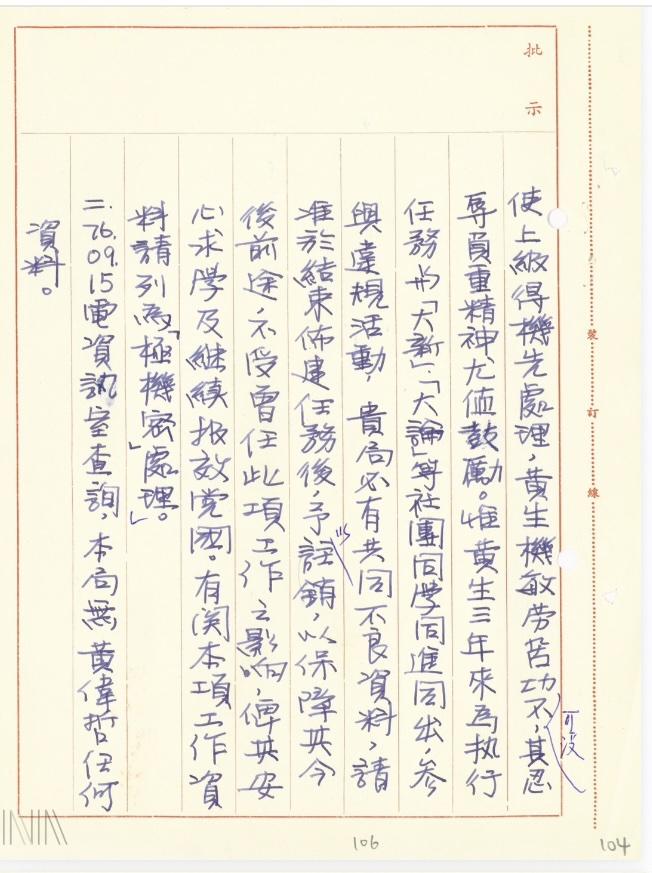 批示
使上級得機先處理，黃生機敏勞苦功不可沒，其忍
辱負重精神尤值鼓勵。惟黃生三年來為执行
任務与「大新」、「大論」等社團同學同進同出，參
與違規活動，貴局必有其同不良資料，請
准於結束佈建任務後，予以註銷，以保障其今
後前途，不受曾任此項工作之影响，俾其安
心求學及継續报效党国。有関本項工作資
料請列為「極機密」處理。」
二、76.09.15電資訊室查詢，本局無黃偉哲任何
資料。
裝
訂
線
106
104